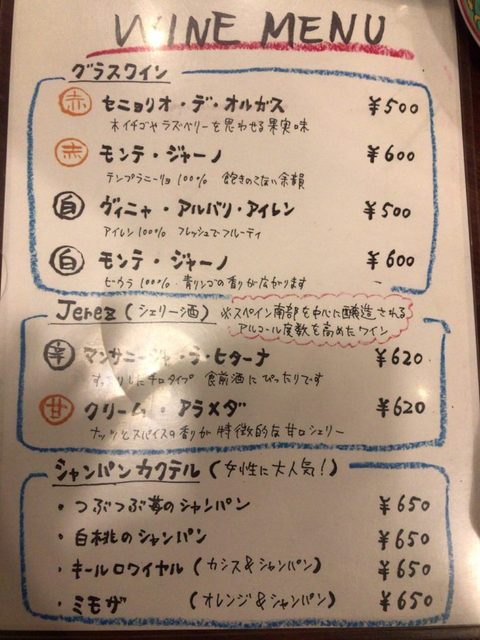 WINE MENU
グラスワイン
赤 セニョリオ・デ・オルガス ¥500
木イチゴやラズベリーを思わせる果実味
赤 モンテ・ジャーノ ¥600
テンプラニーリョ100% 飽きのこない余韻
白 ヴィニャ・アルバリ・アイレン ¥500
アイレン100% フレッシュでフルーティ
白 モンテ・ジャーノ ¥600
ビウラ100% 青リンゴの香りが広がります
Jerez(シェリー酒) ※スペイン南部を中心に醸造される
アルコール度数を高めたワイン
辛 マンサニージャ・ラ・ヒターナ ¥620
すっきりした辛口タイプ 食前酒にぴったりです
甘 クリーム・アラメダ ¥620
ナッツとスパイスの香りが特徴的な甘口シェリー
シャンパンカクテル(女性に大人気!)
・つぶつぶ苺のシャンパン ¥650
・白桃のシャンパン ¥650
・キールロワイヤル(カシス&シャンパン) ¥650
・ミモザ(オレンジ&シャンパン) ¥650